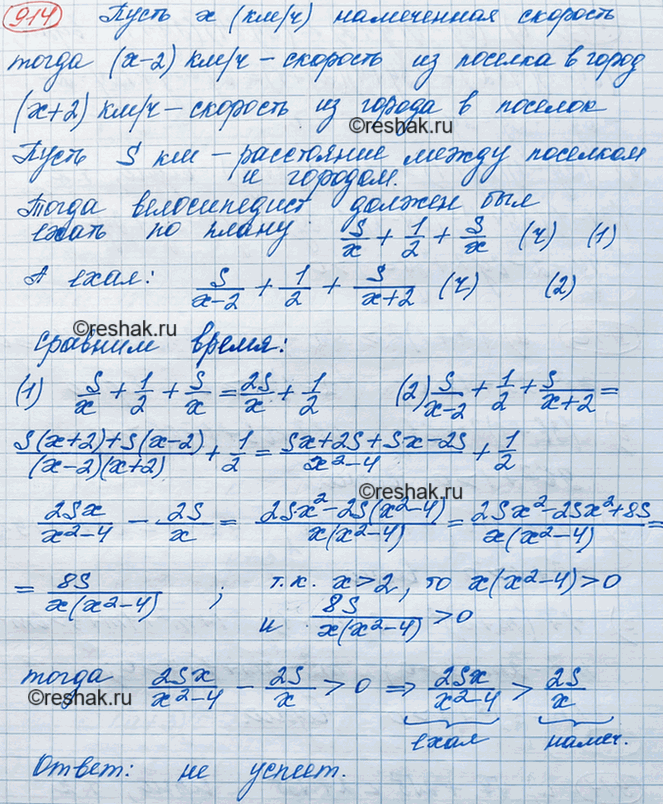 914 Пусть x (км/ч) намеченная скорость
тогда (x-2) км/ч - скорость из поселка в город
(x+2) км/ч - скорость из города в поселок
©reshak.ru
Пусть S км - расстояние между поселком
и городом.
Тогда велосипедист должен был
ехать по плану: S/x + 1/2 + S/x (ч) (1)
А ехал: S/(x-2) + 1/2 + S/(x+2) (ч) (2)
©reshak.ru
Сравним время:
(1) S/x + 1/2 + S/x = 2S/x + 1/2 (2) S/(x-2) + 1/2 + S/(x+2) =
(S(x+2)+S(x-2))/((x-2)(x+2)) + 1/2 = (Sx+2S+Sx-2S)/(x²-4) + 1/2
©reshak.ru
2Sx/(x²-4) - 2S/x = (2Sx²-2S(x²-4))/(x(x²-4)) = (2Sx²-2Sx²+8S)/(x(x²-4)) =
= 8S/(x(x²-4)) ; т.к. x>2, то x(x²-4)>0
и 8S/(x(x²-4)) >0
тогда 2Sx/(x²-4) - 2S/x > 0 ⇒ 2Sx/(x²-4) > 2S/x
©reshak.ru
ехал намеч.
Ответ: не успеет.